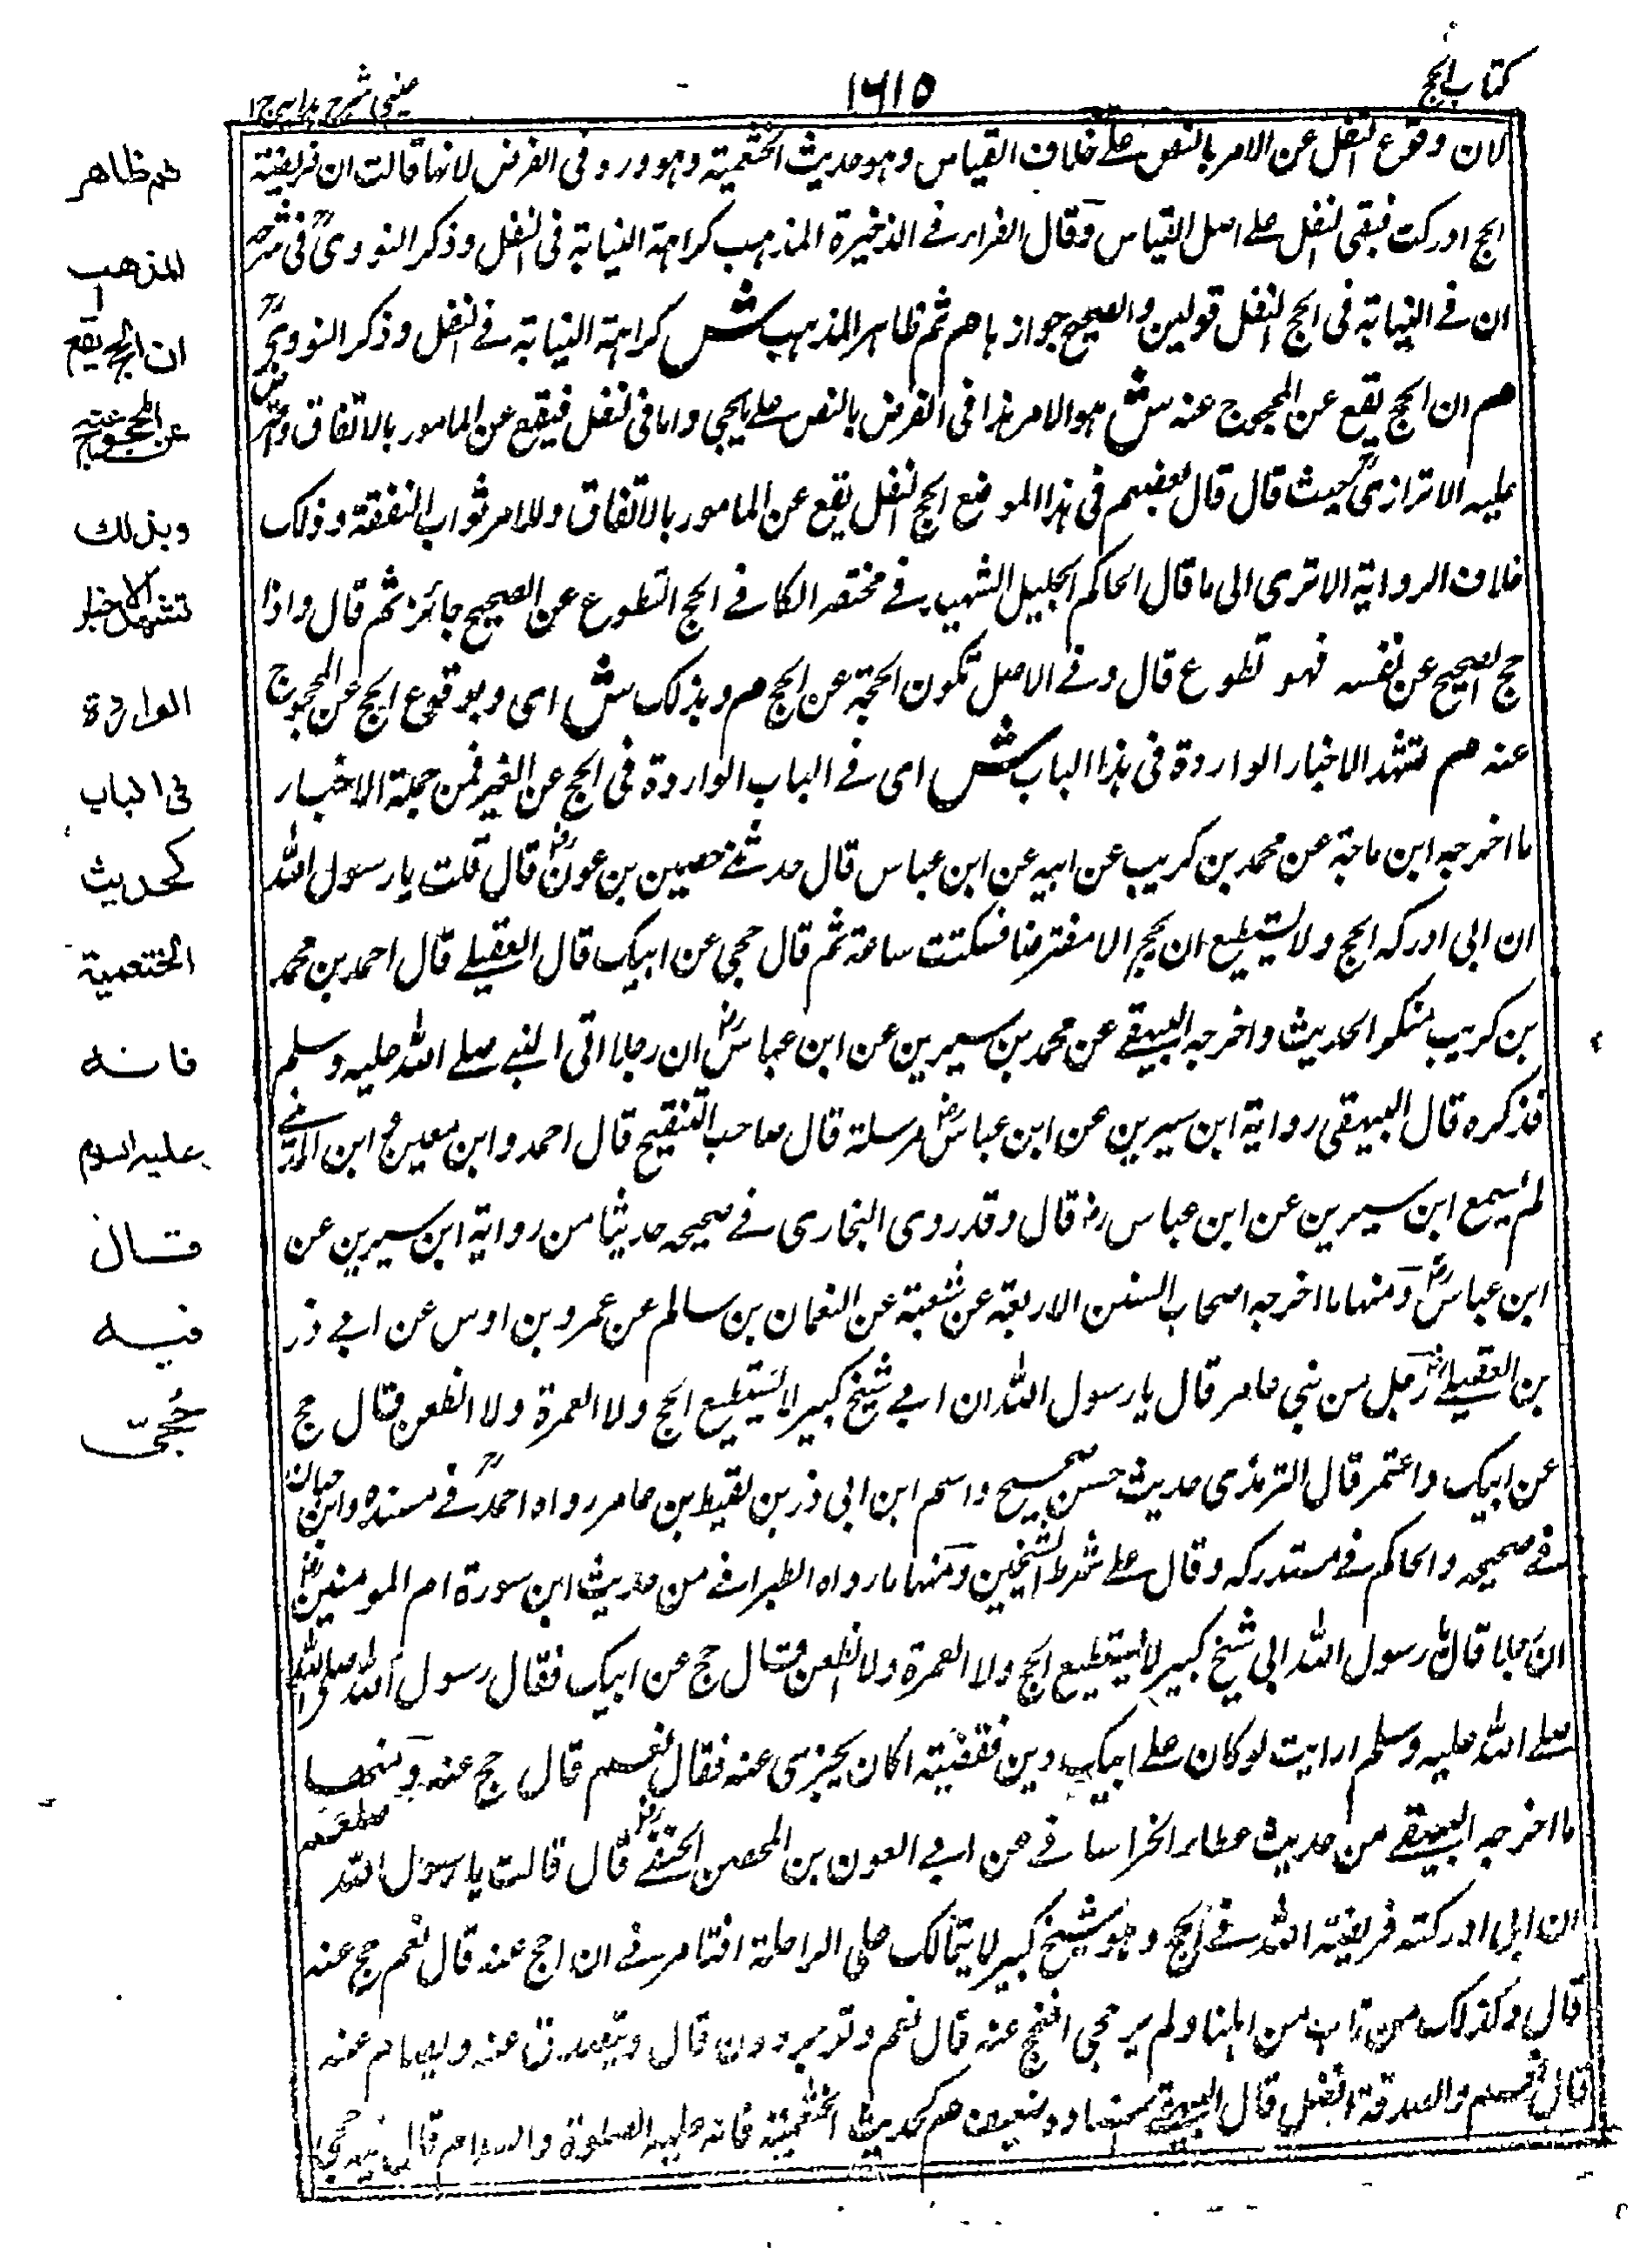 كتاب الحج
١٦١٥
عينى شرح هدايه ج١
لان وقوع النفل عن الامر بالنص على خلاف القياس وهو حديث الخثعمية وهو ورد فى الفرض لانها قالت ان فريضة
الحج ادركت فبقى النفل على اصل القياس وقال القرافى فى الذخيرة المذهب كراهة النيابة فى النفل وذكر النووى فى شرحه
ان فى النيابة فى الحج النفل قولين والصحيح جوازها هم ثم ظاهر المذهب ش كراهة النيابة فى النفل وذكر النووى
هم ان الحج يقع عن المحجوج عنه ش هو الامر هذا فى الفرض بالنص على يجي واما فى النفل فيقع عن المامور بالاتفاق
عليه الاترازى حيث قال قال بعضهم فى هذا الموضع الحج النفل يقع عن المامور بالاتفاق وللامر ثواب النفقة وذلك
خلاف الرواية الا ترى الى ما قال الحاكم الجليل الشهيد فى مختصر الكافى الحج التطوع عن الصحيح جائز ثم قال واذا
حج الصحيح عن نفسه فهو تطوع قال وفى الاصل تكون الحجة عن الحج هم وبذلك ش اى وبوقوع الحج عن المحجوج
عنه هم تشهد الاخبار الواردة فى هذا الباب ش اى فى الباب الواردة فى الحج عن الغير فمن جملة الاخبار
ما اخرجه ابن ماجة عن محمد بن كريب عن ابيه عن ابن عباس قال حدثنى حصين بن عوف قال قلت يا رسول الله
ان ابى ادركه الحج ولا يستطيع ان يحج الا مفترضا فسكتت ساعة ثم قال حجى عن ابيك قال العقيلى قال احمد بن محمد
بن كريب منكر الحديث واخرجه البيهقى عن محمد بن سيرين عن ابن عباس ان رجلا اتى النبى صلى الله عليه وسلم
فذكره قال البيهقى رواية ابن سيرين عن ابن عباس مرسلة قال صاحب التنقيح قال احمد وابن معين وابن المدينى
لم يسمع ابن سيرين عن ابن عباس رض قال وقد روى البخارى فى صحيحه حديثا من رواية ابن سيرين عن
ابن عباس ومنها ما اخرجه اصحاب السنن الاربعة عن شعبة عن النعمان بن سالم عن عمرو بن اوس عن ابى ذر
بن العقيلى رجل من بنى عامر قال يا رسول الله ان ابى شيخ كبير لا يستطيع الحج ولا العمرة ولا الظعن قال حج
عن ابيك واعتمر قال الترمذى حديث حسن صحيح واسم ابن ابى ذر بن لقيط بن عامر رواه احمد فى مسنده وابن حبان
فى صحيحه والحاكم فى مستدركه وقال على شرط الشيخين ومنها ما رواه الطبرانى من حديث ابن سورة ام المومنين
ان رجلا قال يا رسول الله ابى شيخ كبير لا يستطيع الحج ولا العمرة ولا الظعن قال حج عن ابيك فقال رسول الله صلى الله
صلى الله عليه وسلم ارايت لو كان على ابيك دين فقضيته اكان يجزى عنه فقال نعم قال حج عنه ومنها
ما اخرجه البيهقى من حديث عطاء الخراسانى عن ابى العون بن المحصن الخثعمى قال قالت يا رسول الله صلعم
ان ابى ادركته فريضة الله فى الحج وهو شيخ كبير لا يتمالك على الراحلة افتامرنى ان احج عنه قال نعم حج عنه
قال وكذلك من مات من اهلنا ولم يرحجى افنحج عنه قال نعم وتوجرون قال ويتصدق عنه ويصام عنه
قال نعم والصدقة افضل قال البيهقى اسناده ضعيف هم كحديث الخثعمية فانه عليه الصلوة والسلام قال فيه حجى
هم ظاهر
المذهب
ان الحج يقع
عن المحجوج عنه
وبذلك
تشهد الاخبار
الواردة
فى الباب
كحديث
الخثعمية
فانه
عليه السلام
قال
فيه
حُجّى